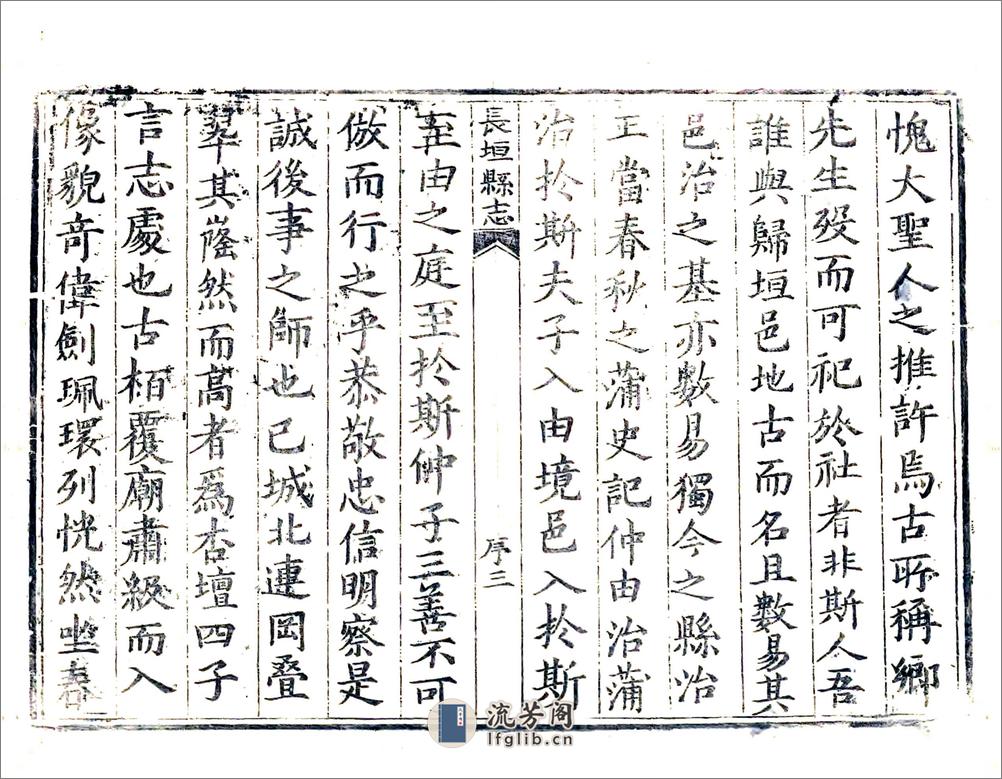 愧大聖人之推許焉古所稱鄉
先生歿而可祀於社者非斯人吾
誰與歸垣邑地古而名且數易其
邑治之基亦數易獨今之縣治
正當春秋之蒲史記仲由治蒲
治於斯夫子入由境邑入於斯
長垣縣志
序三
至由之庭至於斯仲子三善不可
倣而行之乎恭敬忠信明察是
誠後事之師也已城北連岡叠
翠其嶐然而高者爲杏壇四子
言志處也古栢覆廟肅級而入
像貌奇偉劍珮環列恍然坐春
流芳阁
lfglib.cn